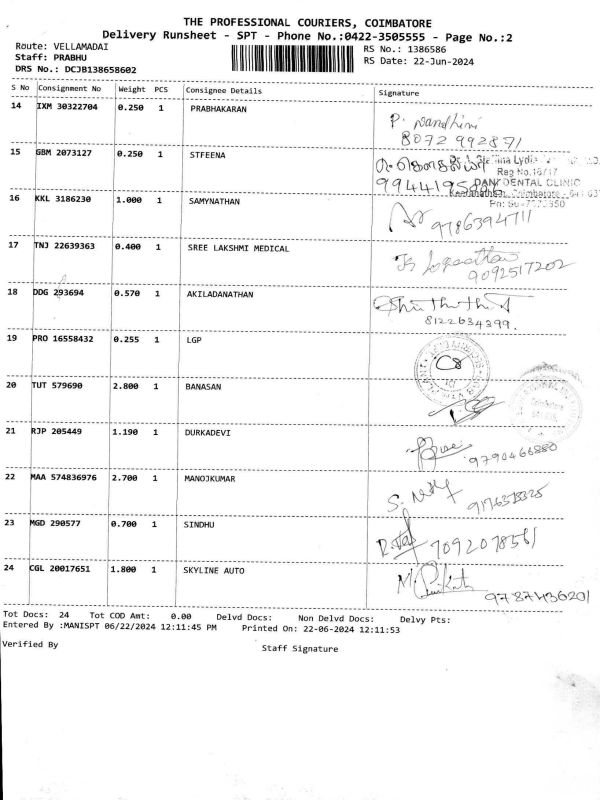 THE PROFESSIONAL COURIERS, COIMBATORE
Delivery Runsheet - SPT - Phone No.:0422-3505555 - Page No.:2
Route: VELLAMADAI
RS No.: 1386586
Staff: PRABHU
RS Date: 22-Jun-2024
DRS No.: DCJB138658602
S No Consignment No Weight PCS Consignee Details Signature
14 IXM 30322704 0.250 1 PRABHAKARAN
P. Nandhini
8072992871
15 GBM 2073127 0.250 1 STFEENA
DENTAL CLINIC
16 KKL 3186230 1.000 1 SAMYNATHAN
9786394711
17 TNJ 22639363 0.400 1 SREE LAKSHMI MEDICAL
9092517202
18 DDG 293694 0.570 1 AKILADANATHAN
8122634399.
19 PRO 16558432 0.255 1 LGP
20 TUT 579690 2.800 1 BANASAN
21 RJP 205449 1.190 1 DURKADEVI
9790466880
22 MAA 574836976 2.700 1 MANOJKUMAR
23 MGD 290577 0.700 1 SINDHU
7092078561
24 CGL 20017651 1.800 1 SKYLINE AUTO
9787436201
Tot Docs: 24 Tot COD Amt: 0.00 Delvd Docs: Non Delvd Docs: Delvy Pts:
Entered By :MANISPT 06/22/2024 12:11:45 PM Printed On: 22-06-2024 12:11:53
Verified By
Staff Signature